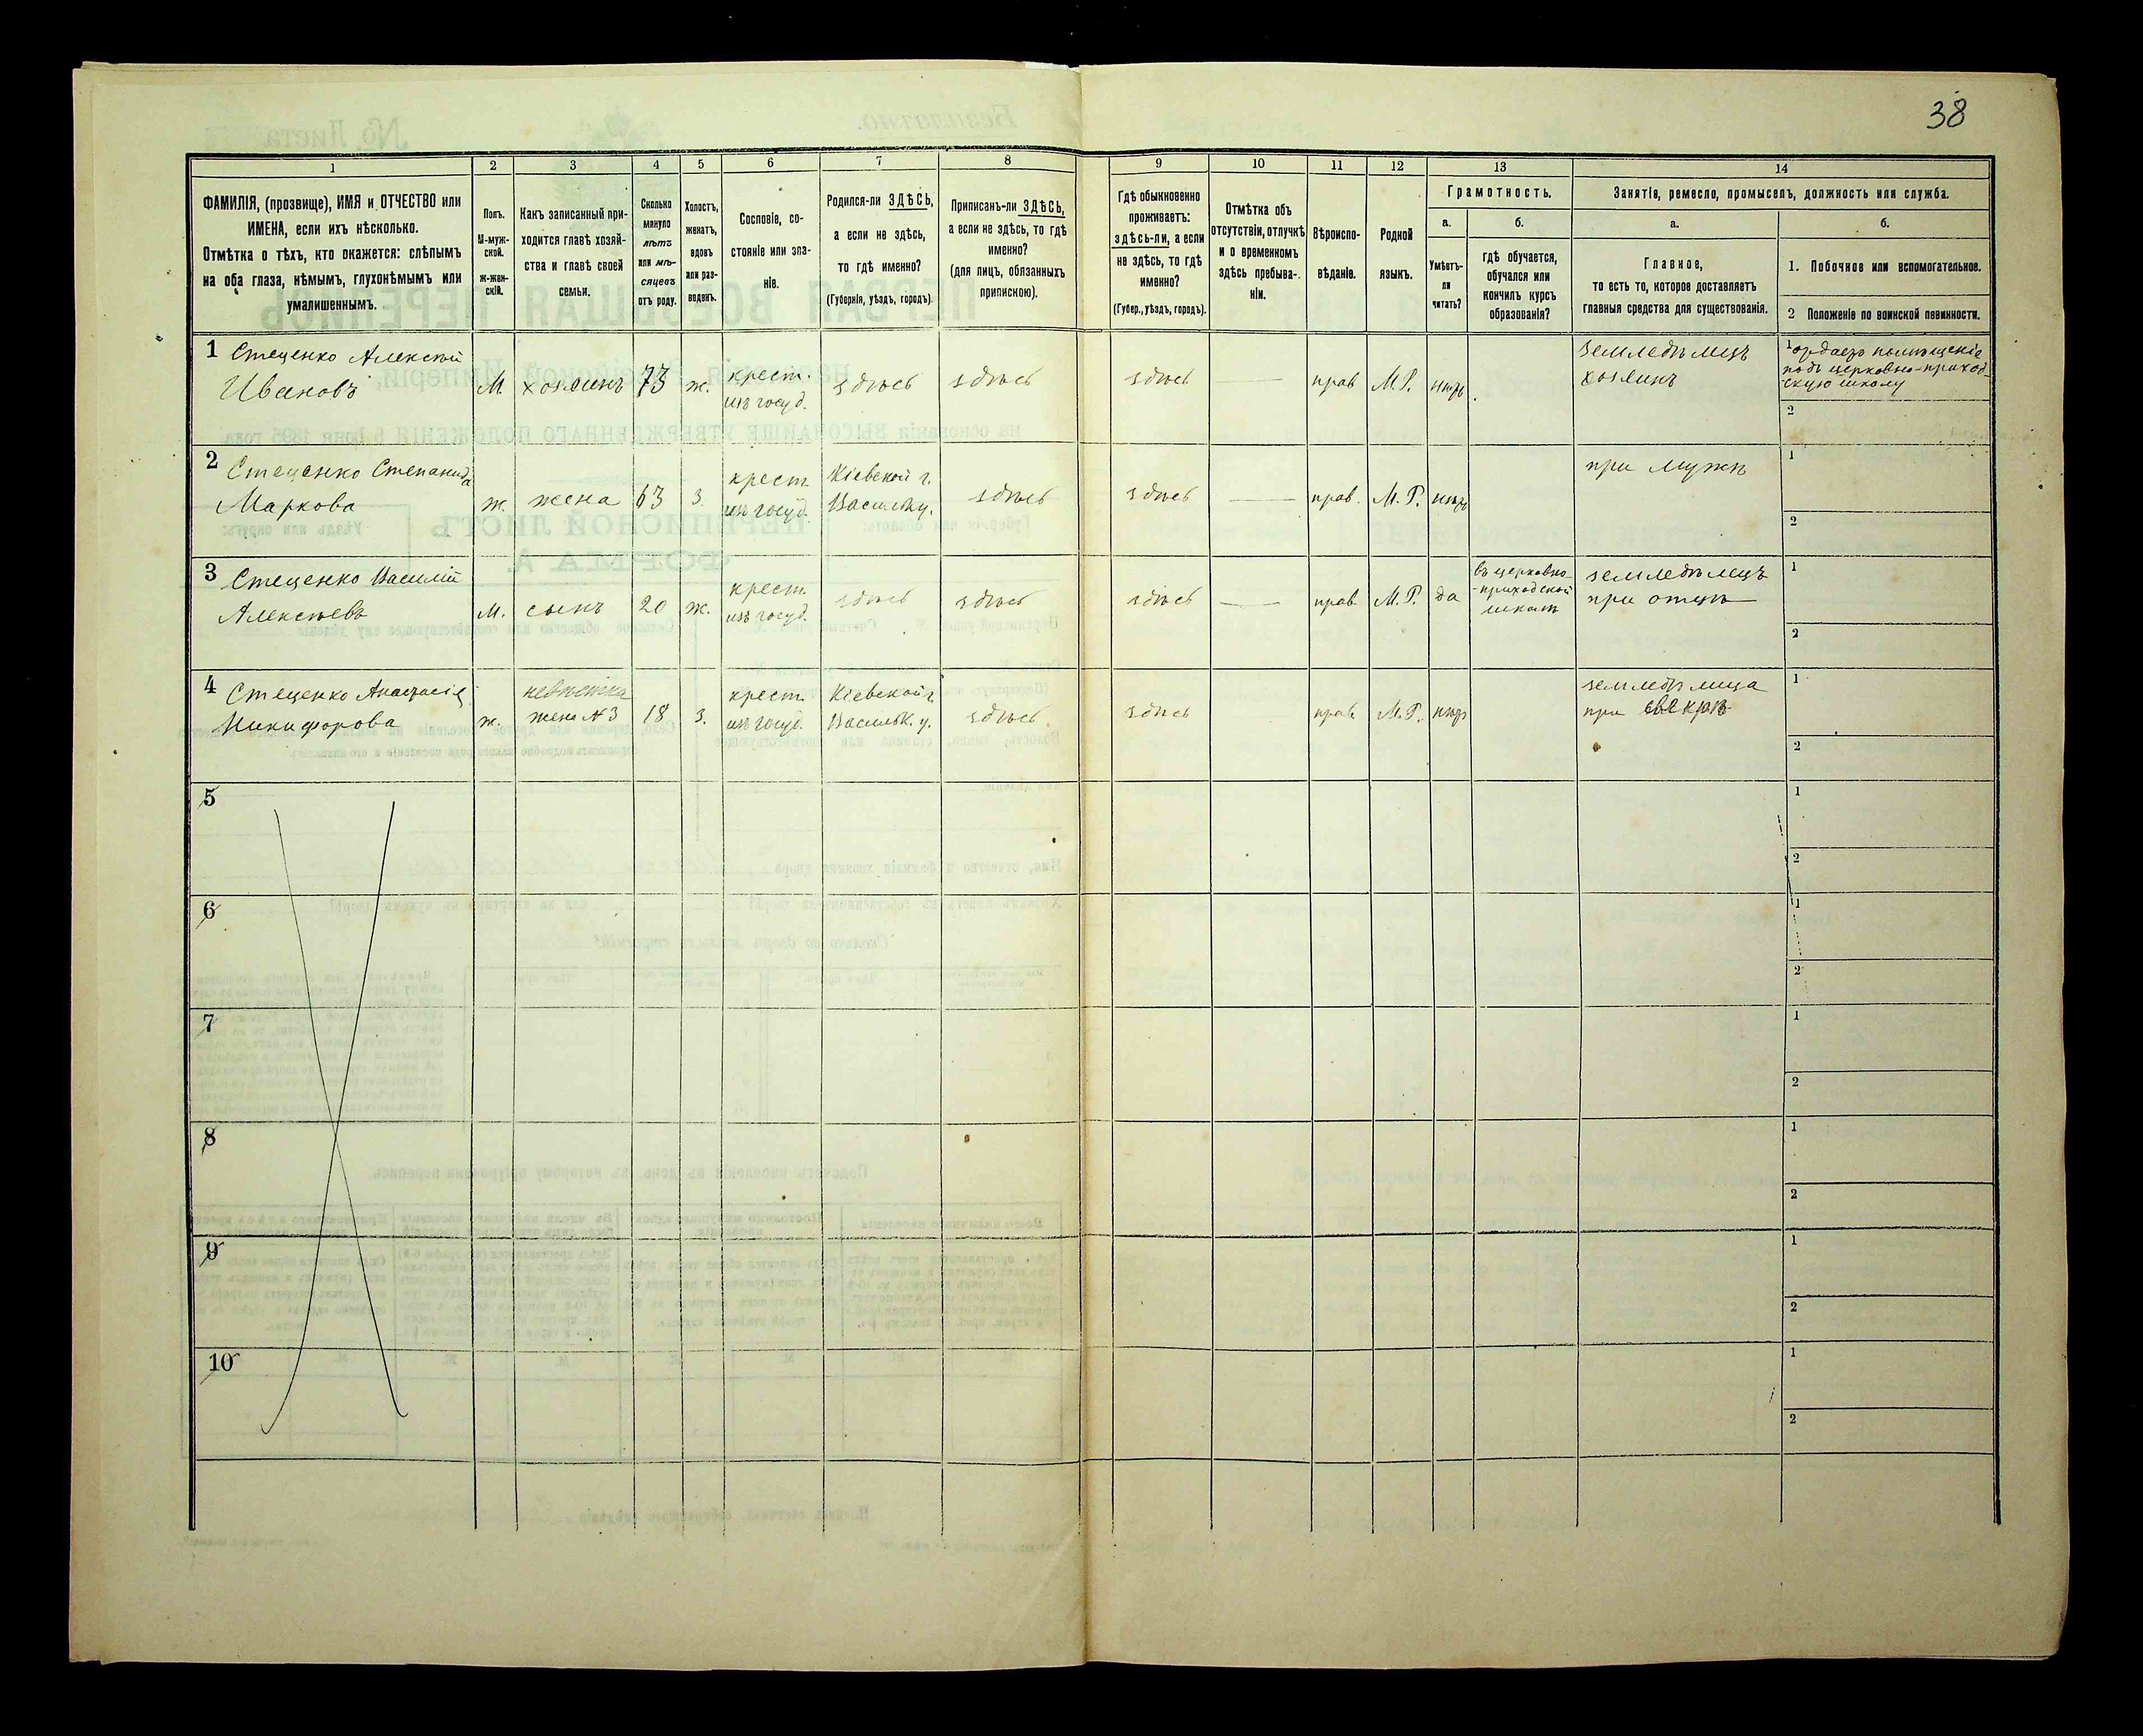 38
1 2 3 4 5 6 7 8 9 10 11 12 13 14
ФАМИЛІЯ, (прозвище), ИМЯ и ОТЧЕСТВО или
ИМЕНА, если ихъ нѣсколько.
Отмѣтка о тѣхъ, кто окажется: слѣпымъ
на оба глаза, нѣмымъ, глухонѣмымъ или
умалишеннымъ.
Полъ.
М-муж-
ской.
ж-жен-
скій.
Какъ записанный при-
ходится главѣ хозяй-
ства и главѣ своей
семьи.
Сколько
минуло
лѣтъ
или мѣ-
сяцевъ
отъ роду.
Холостъ,
женатъ,
вдовъ
или раз-
веденъ.
Сословіе, со-
стояніе или зва-
ніе.
Родился-ли ЗДѢСЬ,
а если не здѣсь,
то гдѣ именно?
(Губернія, уѣздъ, городъ).
Приписанъ-ли ЗДѢСЬ,
а если не здѣсь, то гдѣ
именно?
(для лицъ, обязанныхъ
припискою).
Гдѣ обыкновенно
проживаетъ:
здѣсь-ли, а если
не здѣсь, то гдѣ
именно?
(Губер., уѣздъ, городъ).
Отмѣтка объ
отсутствіи, отлучкѣ
и о временномъ
здѣсь пребыва-
ніи.
Вѣроиспо-
вѣданіе.
Родной
языкъ.
Грамотность.
а.
Умѣетъ-
ли
читать?
б.
гдѣ обучается,
обучался или
кончилъ курсъ
образованія?
Занятія, ремесло, промыселъ, должность или служба.
а.
Главное,
то есть то, которое доставляетъ
главныя средства для существованія.
б.
1. Побочное или вспомогательное.
2 Положеніе по воинской повинности.
1 Стеценко Алексѣй
Ивановъ
М.
хозяинъ
73
ж.
крест.
изъ госуд.
здѣсь
здѣсь
здѣсь
—
прав
М.Р.
нѣтъ
земледѣлецъ
хозяинъ
1 отдаетъ помѣщеніе
подъ церковно-приход-
скую школу
2
2 Стеценко Степанида
Маркова
ж.
жена
63
з.
крест
изъ госуд.
Кіевской г.
Васильк у.
здѣсь
здѣсь
—
прав.
М.Р.
нѣтъ
при мужѣ
1
2
3 Стеценко Василій
Алексѣевъ
м.
сынъ
20
ж.
крест.
изъ госуд.
здѣсь
здѣсь
здѣсь
—
прав
М.Р.
да
въ церковно-
-приходской
школѣ
земледѣлецъ
при отцѣ
1
2
4 Стеценко Анастасія
Никифорова
ж.
невѣстка
жена N 3
18
з.
крест.
изъ госуд.
Кіевской г.
Васильк. у.
здѣсь.
здѣсь
прав.
М.Р.
нѣтъ
земледѣлица
при свекрѣ
1
2
5
1
2
6
1
2
7
1
2
8
1
2
9
1
2
10
1
2